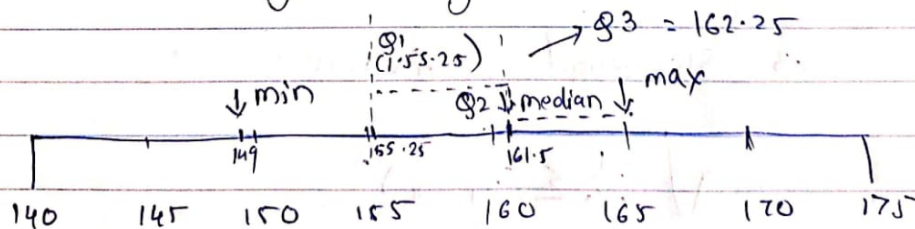 Q1
(1.55.25)
→ Q3 = 162.25
↓ min
Q2 ↓ median ↓ max
149 155.25 161.5
140 145 150 155 160 165 170 175